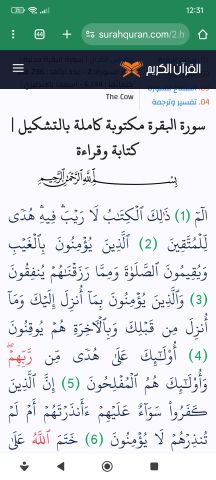 12:31
46
surahquran.com/2.h
القرآن الكريم
The Cow
04. تفسير وترجمة
سورة البقرة مكتوبة كاملة بالتشكيل |
كتابة وقراءة
بِسْمِ اللَّهِ الرَّحْمَٰنِ الرَّحِيمِ
الٓمٓ (1) ذَٰلِكَ ٱلْكِتَٰبُ لَا رَيْبَۛ فِيهِۛ هُدًى
لِّلْمُتَّقِينَ (2) ٱلَّذِينَ يُؤْمِنُونَ بِٱلْغَيْبِ
وَيُقِيمُونَ ٱلصَّلَوٰةَ وَمِمَّا رَزَقْنَٰهُمْ يُنفِقُونَ
(3) وَٱلَّذِينَ يُؤْمِنُونَ بِمَآ أُنزِلَ إِلَيْكَ وَمَآ
أُنزِلَ مِن قَبْلِكَ وَبِٱلْأٓخِرَةِ هُمْ يُوقِنُونَ
(4) أُو۟لَٰٓئِكَ عَلَىٰ هُدًى مِّن رَّبِّهِمْۖ
وَأُو۟لَٰٓئِكَ هُمُ ٱلْمُفْلِحُونَ (5) إِنَّ ٱلَّذِينَ
كَفَرُوا۟ سَوَآءٌ عَلَيْهِمْ ءَأَنذَرْتَهُمْ أَمْ لَمْ
تُنذِرْهُمْ لَا يُؤْمِنُونَ (6) خَتَمَ ٱللَّهُ عَلَىٰ